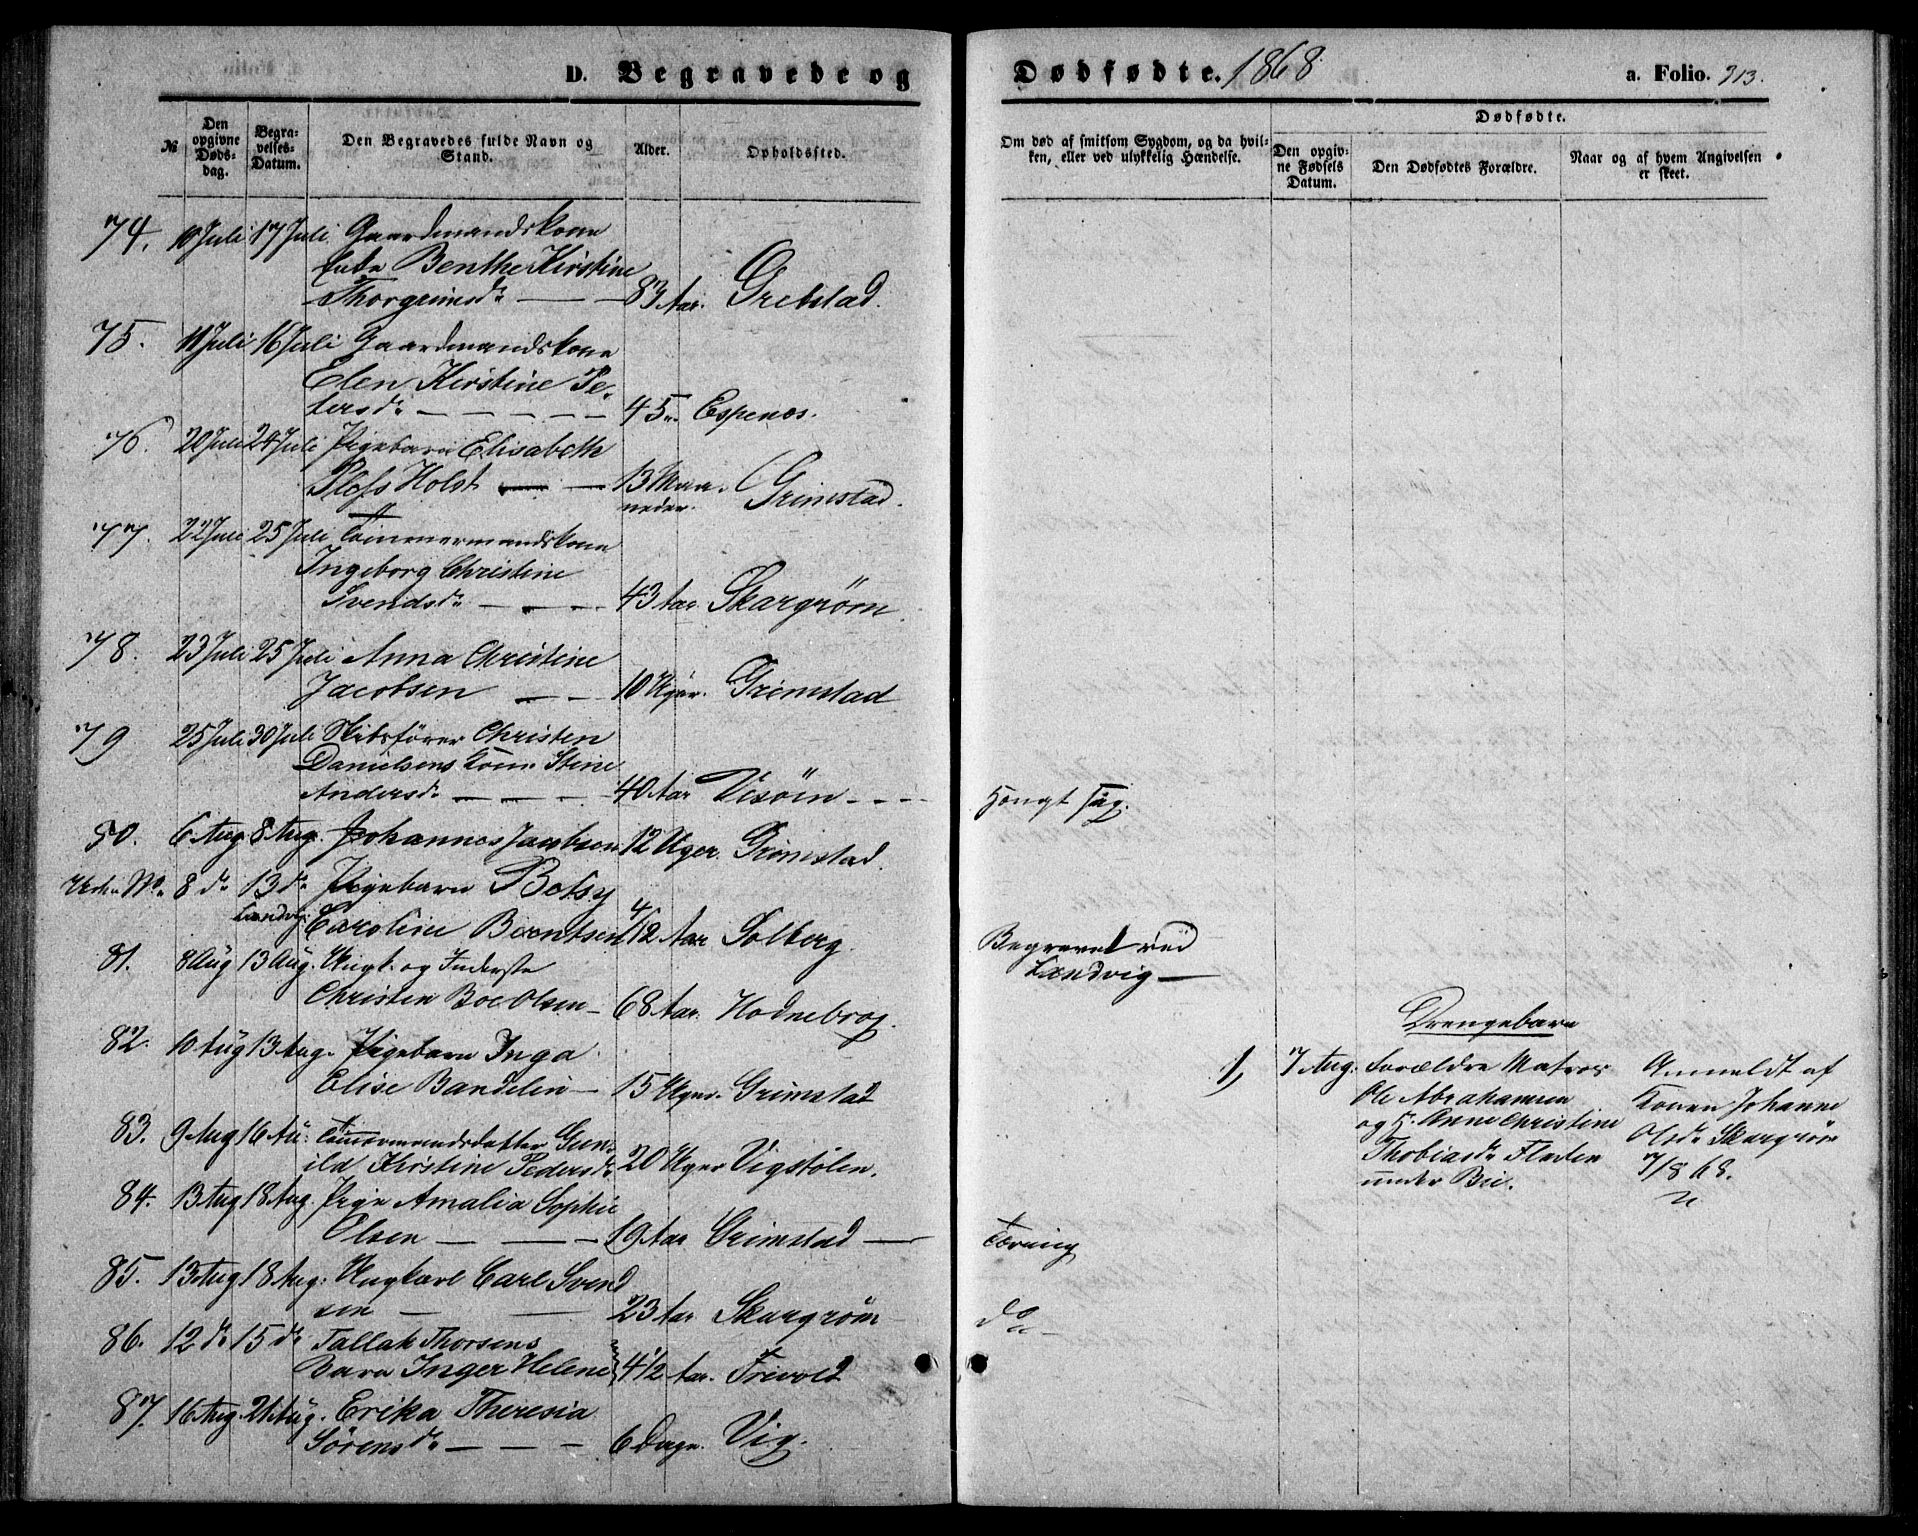 D. Begravede og
№
Den opgivne Døds-dag.
Begra-velses-Datum.
Den Begravedes fulde Navn og Stand.
Alder.
Opholdssted.
74. 10 Juli 17 Juli Gaardmandskone
Benthe Kirstine
Thorgrimsdr — 83 Aar. Grebstad.
75. 11 Juli 16 Juli Gaardmandskone
Elen Kirstine Pe-
tersdr — — — 45 " Espenæs.
76. 20 Juli 24 Juli Pigebarn Elisabeth
Holst — — 13 Maa-
neder. Grimstad.
77. 22 Juli 25 Juli Tømmermandskone
Ingeborg Christine
Svendsdr — — — 43 Aar. Skargrøm.
78. 23 Juli 25 Juli Anna Christine
Jacobsen — — 10 Uger. Grimstad
79 25 Juli 30 Juli Skibsfører Christen
Danielsens Kone Stine
Andersdr — — — 40 Aar Vesøen - - -
80. 6 Aug. 8 Aug. Johannes Jacobsen 12 Uger. Grimstad
Uden No. 8 do 13 do Pigebarn Betsy
Landvig. Caroline Berntsen 4/12 Aar Solberg.
81. 8 Aug 13 Aug. Ungk. og Inderste
Christen Boe Olsen — 68 Aar. Hodnebrog.
82. 10 Aug 13 Aug. Pigebarn Inga
Elise Bandelin — 15 Uger. Grimstad
83. 9 Aug 16 Au: Tømmermandsdatter Gun-
ild Kirstine Pedersdr 20 Uger Vigstølen.
84. 13 Aug 18 Aug. Pige Amalia Sophie
Olsen — — — 19 Aar Grimstad —
85. 13 Aug 18 Aug: Ungkarl Carl Svend
sen — — 23 Aar Skargrøm
86. 12 do 15 do Tallak Thorsens
Barn Inger Helene 4 1/2 Aar. Frivold
87. 16 Aug. 21 Aug. Erika Theresia
Sørensdr — — — 6 Dage. Vig.
Dødfødte. 1868.
a. Folio. 313.
Om død af smitsom Sygdom, og da hvil-ken, eller ved ulykkelig Hændelse.
Dødfødte.
Den opgiv-ne Fødsels Datum.
Den Dødfødtes Forældre.
Naar og af hvem Angivelsen er skeet.
Hængt sig.
Begravet ved
Landvig —
Drengebarn
1, 7 Aug. Forældre Matros
Ole Abrahamsen
og H. Anne Christine
Thobiasdr Fladen
under Bie.
Anmeldt af
Konen Johanne
Olsdr Skargrøm
7/8 68.
Tæring
do —